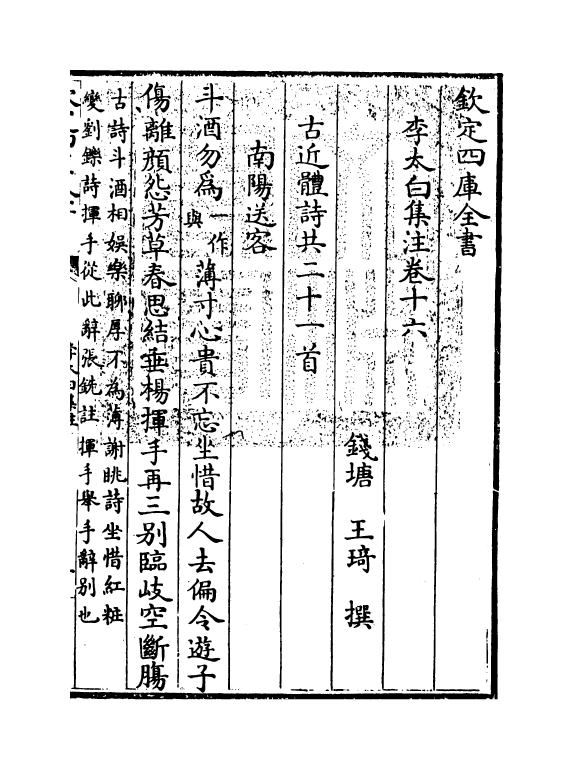 欽定四庫全書
李太白集注卷十六
錢塘 王琦 撰
古近體詩共二十一首
南陽送客
斗酒勿為一作與薄寸心貴不忘坐惜故人去偏令遊子
傷離顔怨芳草春思結垂楊揮手再三别臨岐空斷腸
古詩斗酒相娛樂聊厚不為薄謝眺詩坐惜紅粧
變劉鑠詩揮手從此辭張銑註揮手舉手辭别也